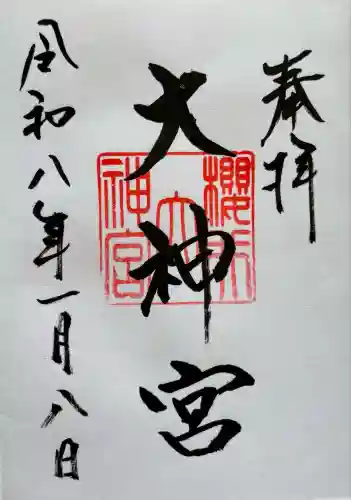 奉拝
大神宮
櫻所
大
神宮
令和八年一月八日